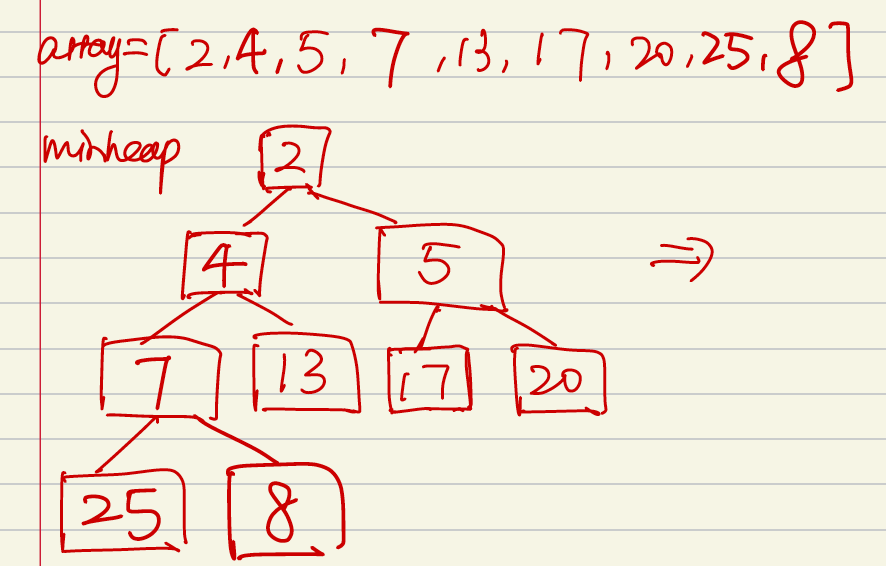 array=[2,4,5,7,13,17,20,25,8]
minheap
2
4 5 ⇒
7 13 17 20
25 8